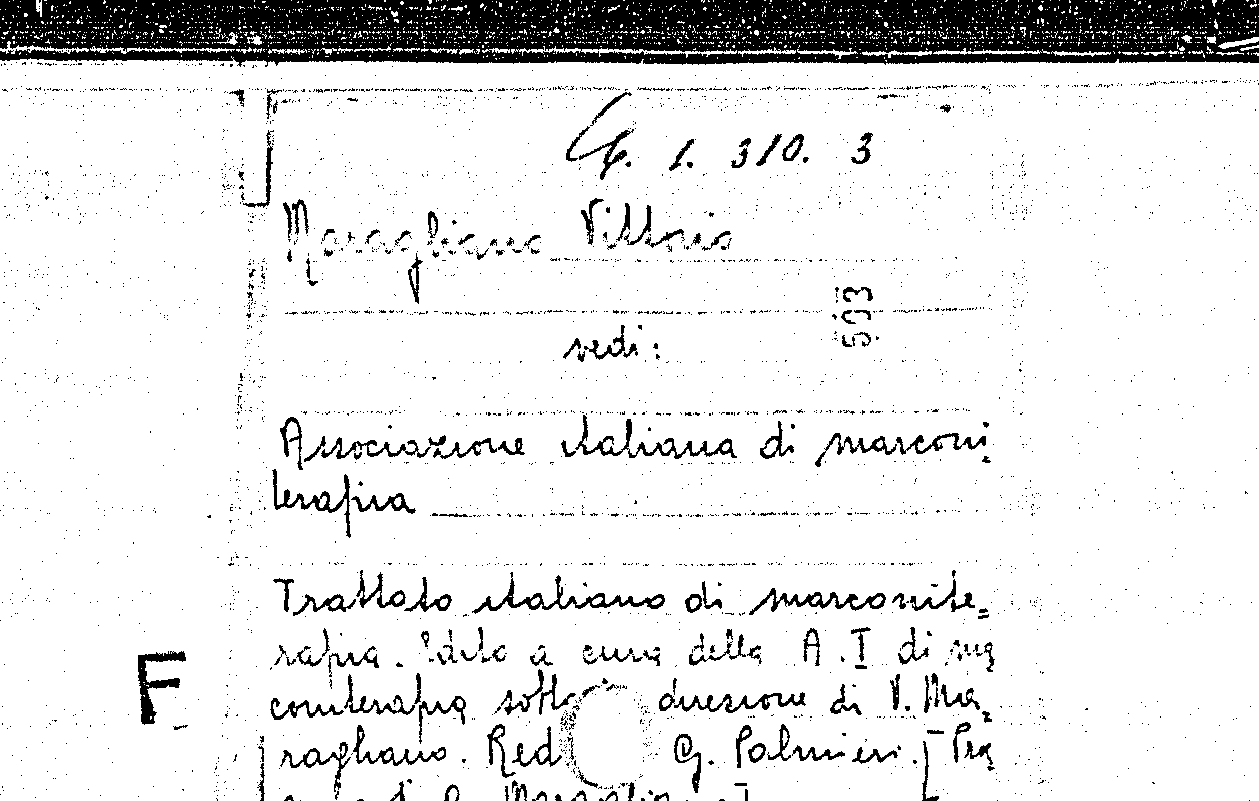 1. 310. 3
Maragliano Vittorio
593
vedi:
Associazione italiana di marconi
terapia
Trattato italiano di marconite=
rapia. Edito a cura della A. I di ma
coniterapia sotto direzione di V. Ma=
ragliano. Red G. Palmieri. [Pra
F